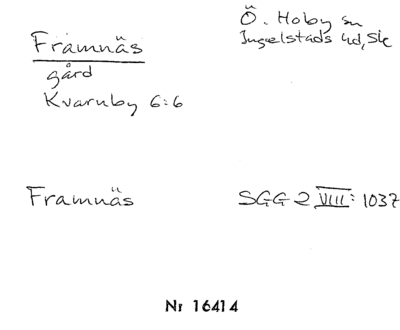 Framnäs
gård
Kvarnby 6:6
Ö. Hoby sn
Ingelstads hd, Sk
Framnäs
SGG 2 VIII: 1037
Nr 16414